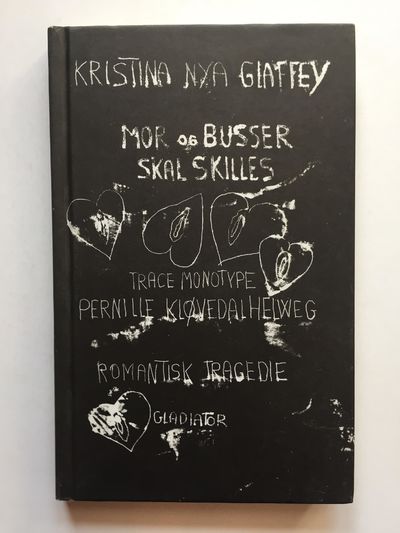 KRISTINA NYA GLAFFEY
MOR OG BUSSER
SKAL SKILLES
TRACE MONOTYPE
PERNILLE KLØVEDAL HELWEG
ROMANTISK TRAGEDIE
GLADIATOR